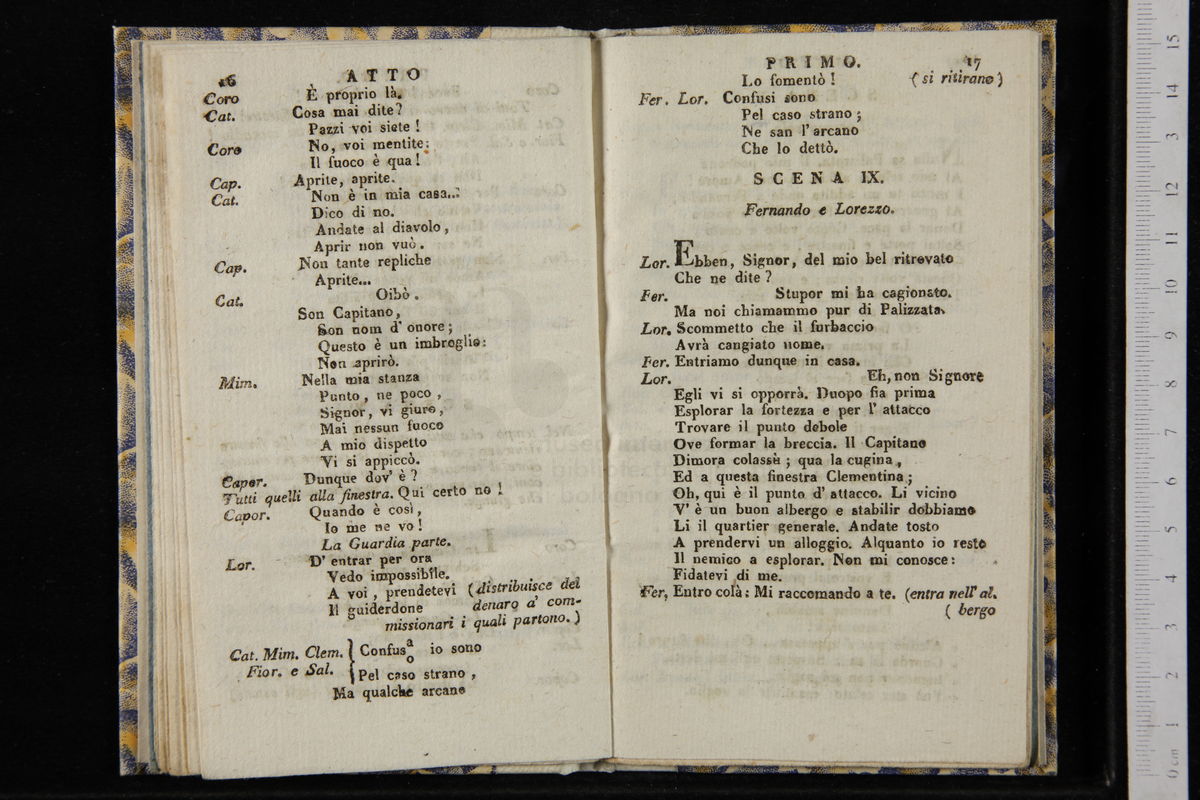 16
ATTO
Coro È proprio là.
Cat. Cosa mai dite?
Pazzi voi siete!
Coro No, voi mentite:
Il fuoco è qua!
Cap. Aprite, aprite.
Cat. Non è in mia casa...
Dico di no.
Andate al diavolo,
Aprir non vuò.
Cap. Non tante repliche
Aprite...
Cat. Oibò.
Son Capitano,
Son nom d' onore;
Questo è un imbroglio:
Non aprirò.
Mim. Nella mia stanza
Punto, ne poco,
Signor, vi giuro,
Mai nessun fuoco
A mio dispetto
Vi si appiccò.
Capor. Dunque dov' è?
Tutti quelli alla finestra. Qui certo no!
Capor. Quando è così,
Io me ne vo!
La Guardia parte.
Lor. D' entrar per ora
Vedo impossibile.
A voi, prendetevi (distribuisce del
Il guiderdone denaro a' com-
missionari i quali partono.)
Cat. Mim. Clem. } Confus a/o io sono
Fior. e Sal. } Pel caso strano,
Ma qualche arcano
PRIMO.
17
Lo fomentò! (si ritirano)
Fer. Lor. Confusi sono
Pel caso strano;
Ne san l' arcano
Che lo dettò.
SCENA IX.
Fernando e Lorezzo.
Lor. Ebben, Signor, del mio bel ritrovato
Che ne dite?
Fer. Stupor mi ha cagionato.
Ma noi chiamammo pur di Palizzata.
Lor. Scommetto che il furbaccio
Avrà cangiato nome.
Fer. Entriamo dunque in casa.
Lor. Eh, non Signore
Egli vi si opporrà. Duopo fia prima
Esplorar la fortezza e per l' attacco
Trovare il punto debole
Ove formar la breccia. Il Capitano
Dimora colassù; qua la cugina,
Ed a questa finestra Clementina;
Oh, qui è il punto d' attacco. Li vicino
V' è un buon albergo e stabilir dobbiamo
Li il quartier generale. Andate tosto
A prendervi un alloggio. Alquanto io resto
Il nemico a esplorar. Non mi conosce:
Fidatevi di me.
Fer. Entro colà: Mi raccomando a te. (entra nell' al.
( bergo
0 cm 1 2 3 4 5 6 7 8 9 10 11 12 13 14 15